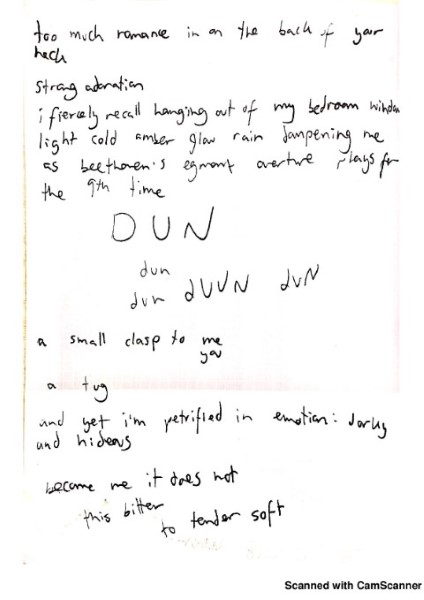 too much romance in on the back of your
neck
strong adoration
i fiercely recall hanging out of my bedroom window
light cold amber glow rain dampening me
as beethoven's egmont overture plays for
the 9th time
DUN
dun
dun dUUN dUN
a small clasp to me
you
a tug
and yet i'm petrified in emotion: dorky
and hideous
become me it does not
this bitter
to tender soft
Scanned with CamScanner